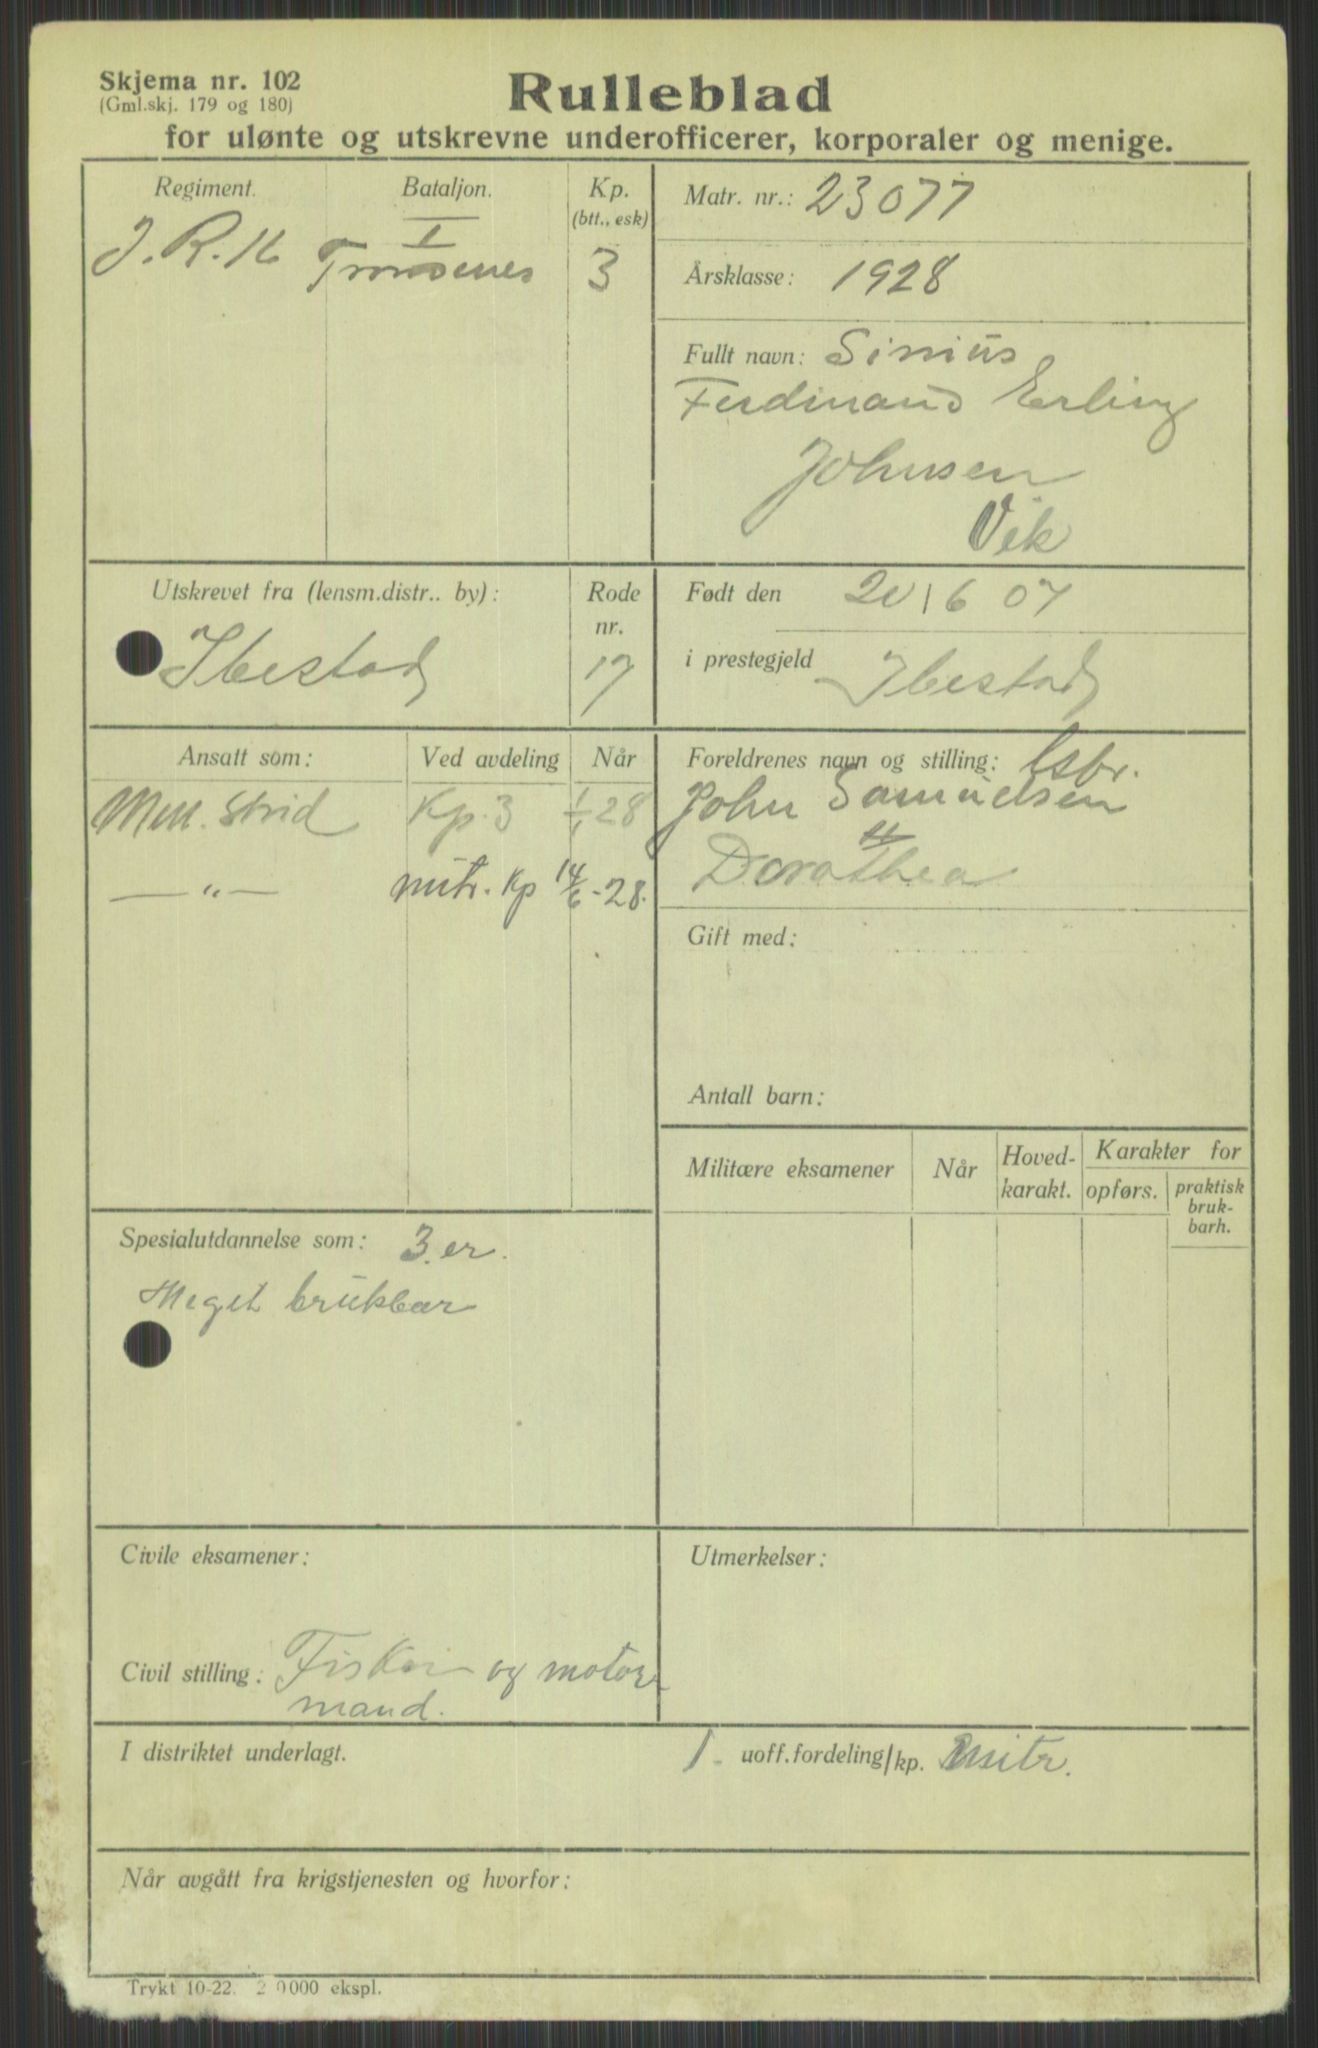 Skjema nr. 102
(Gml.skj. 179 og 180)
Rulleblad
for ulønte og utskrevne underofficerer, korporaler og menige.
Regiment.
J. R. 16
Bataljon.
I
Trondenes
Kp.
(btt., esk)
3
Matr. nr.: 23077
Årsklasse: 1928
Fullt navn: Sinius
Ferdinand Erling
Johnsen
Vik
Utskrevet fra (lensm.distr.. by):
Ibestad
Rode
nr.
17
Født den 20/6 07
i prestegjeld Ibestad
Ansatt som: Ved avdeling Når
Men. Strid Kp. 3 1/1 28
— „ — mitr. Kp 14/6 - 28.
Foreldrenes navn og stilling: Gsbr.
John Samuelsen
Dorothea
Gift med:
Antall barn:
Militære eksamener
Når
Hoved-
karakt.
Karakter for
opførs.
praktisk
bruk-
barh.
Spesialutdannelse som: 3. er.
Meget brukbar
Civile eksamener:
Civil stilling: Fisker og motor
mand.
Utmerkelser:
I distriktet underlagt.
1. uoff.fordeling/kp. mitr.
Når avgått fra krigstjenesten og hvorfor:
Trykt 10-22. 2 0000 ekspl.